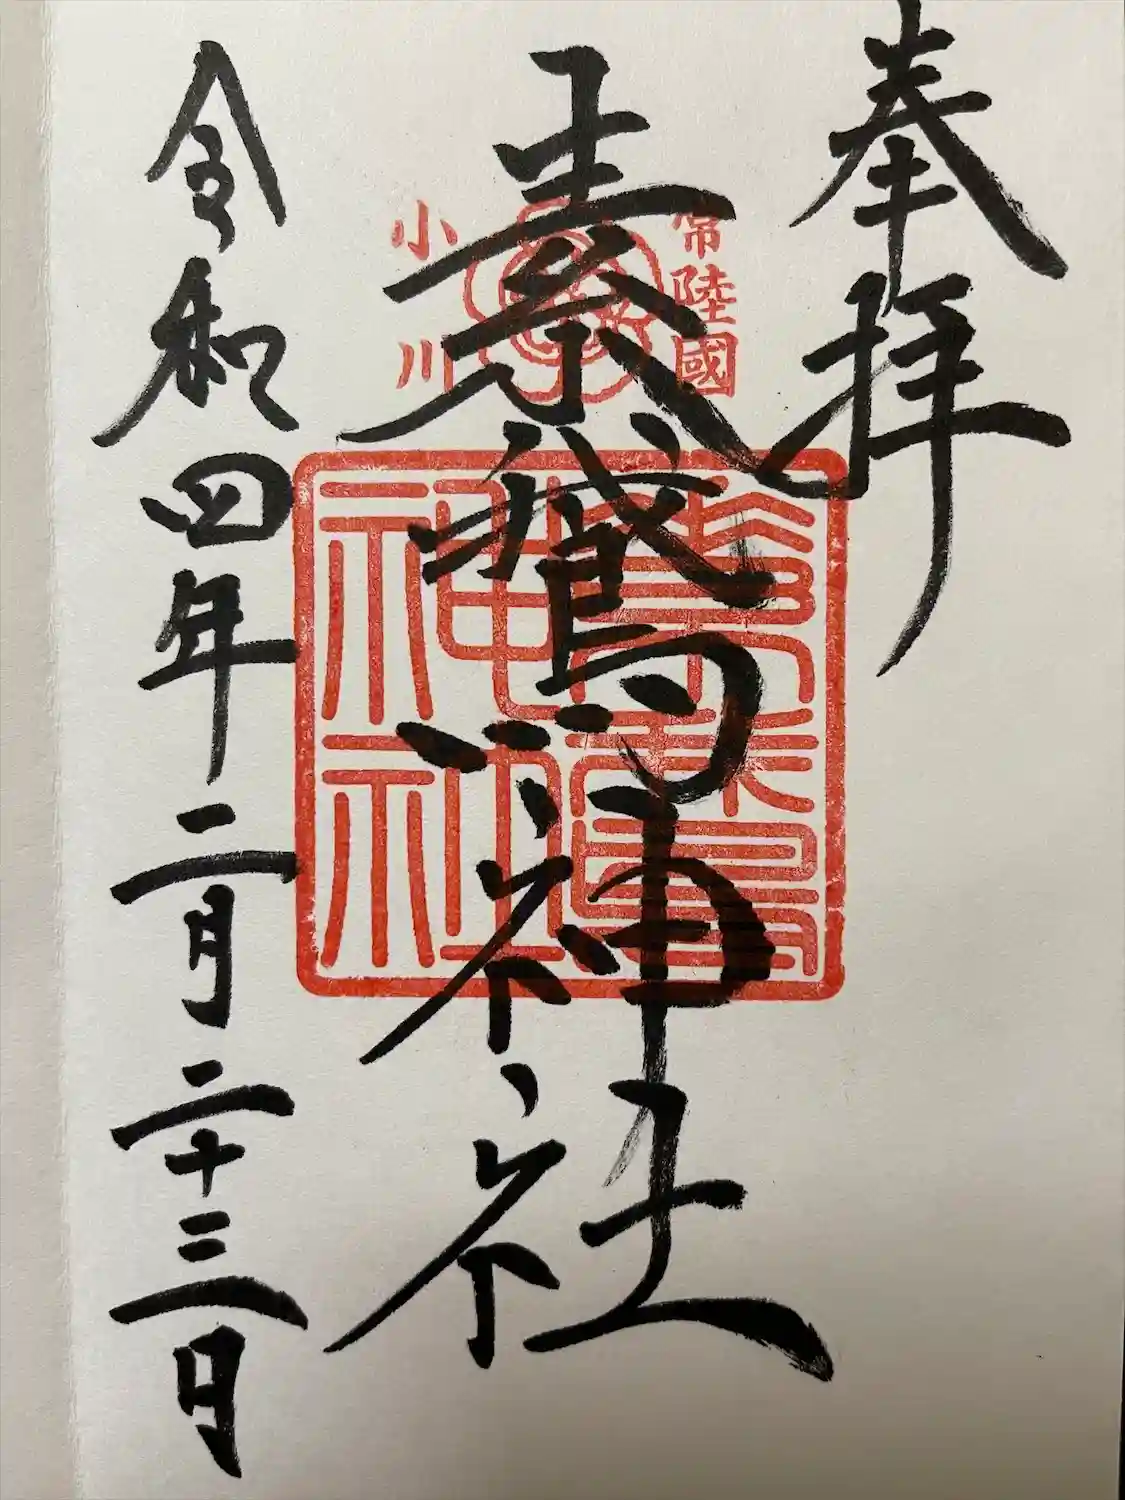 奉拝
常陸國
小川
素鵞神社
素鵞神社
令和四年二月二十三日